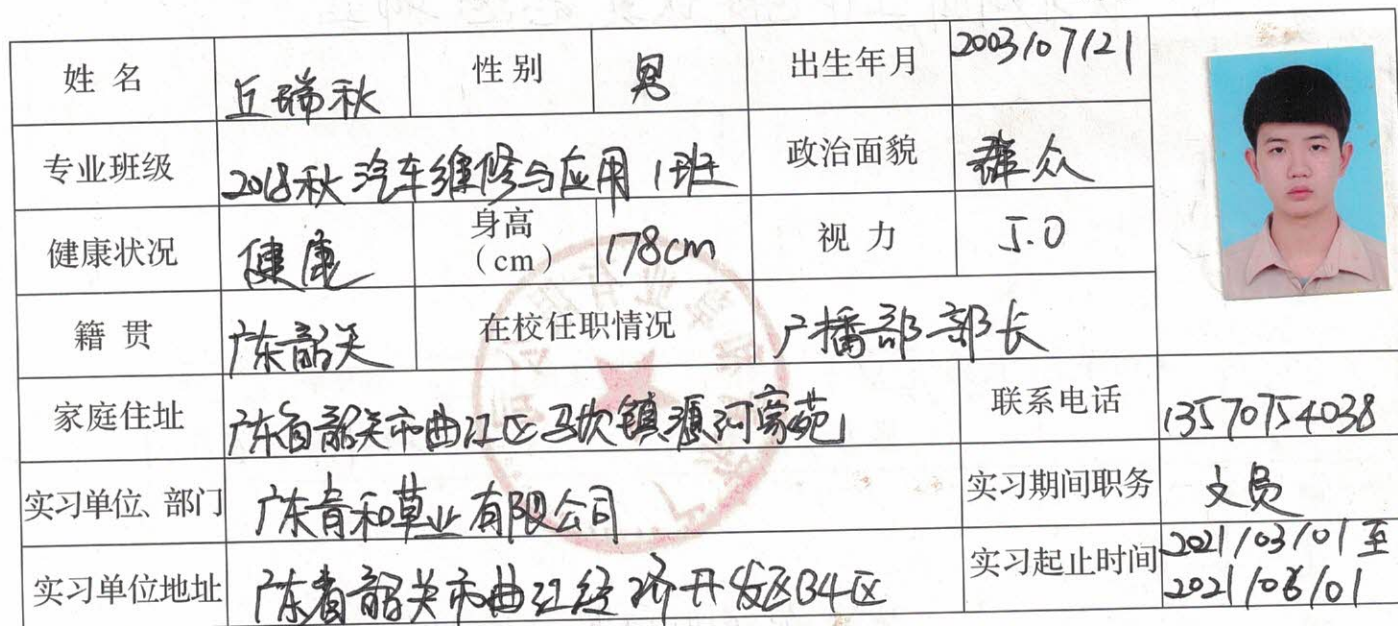 姓 名 丘瑞秋 性别 男 出生年月 2003/07/21
专业班级 2018秋汽车维修与应用1班 政治面貌 群众
健康状况 健康 身高（cm） 178cm 视 力 5.0
籍 贯 广东韶关 在校任职情况 广播部部长
家庭住址 广东省韶关市曲江区马坝镇源河豪苑 联系电话 13570754038
实习单位、部门 广东青和草业有限公司 实习期间职务 文员
实习单位地址 广东省韶关市曲江经济开发区B4区 实习起止时间 2021/03/01至
2021/06/01